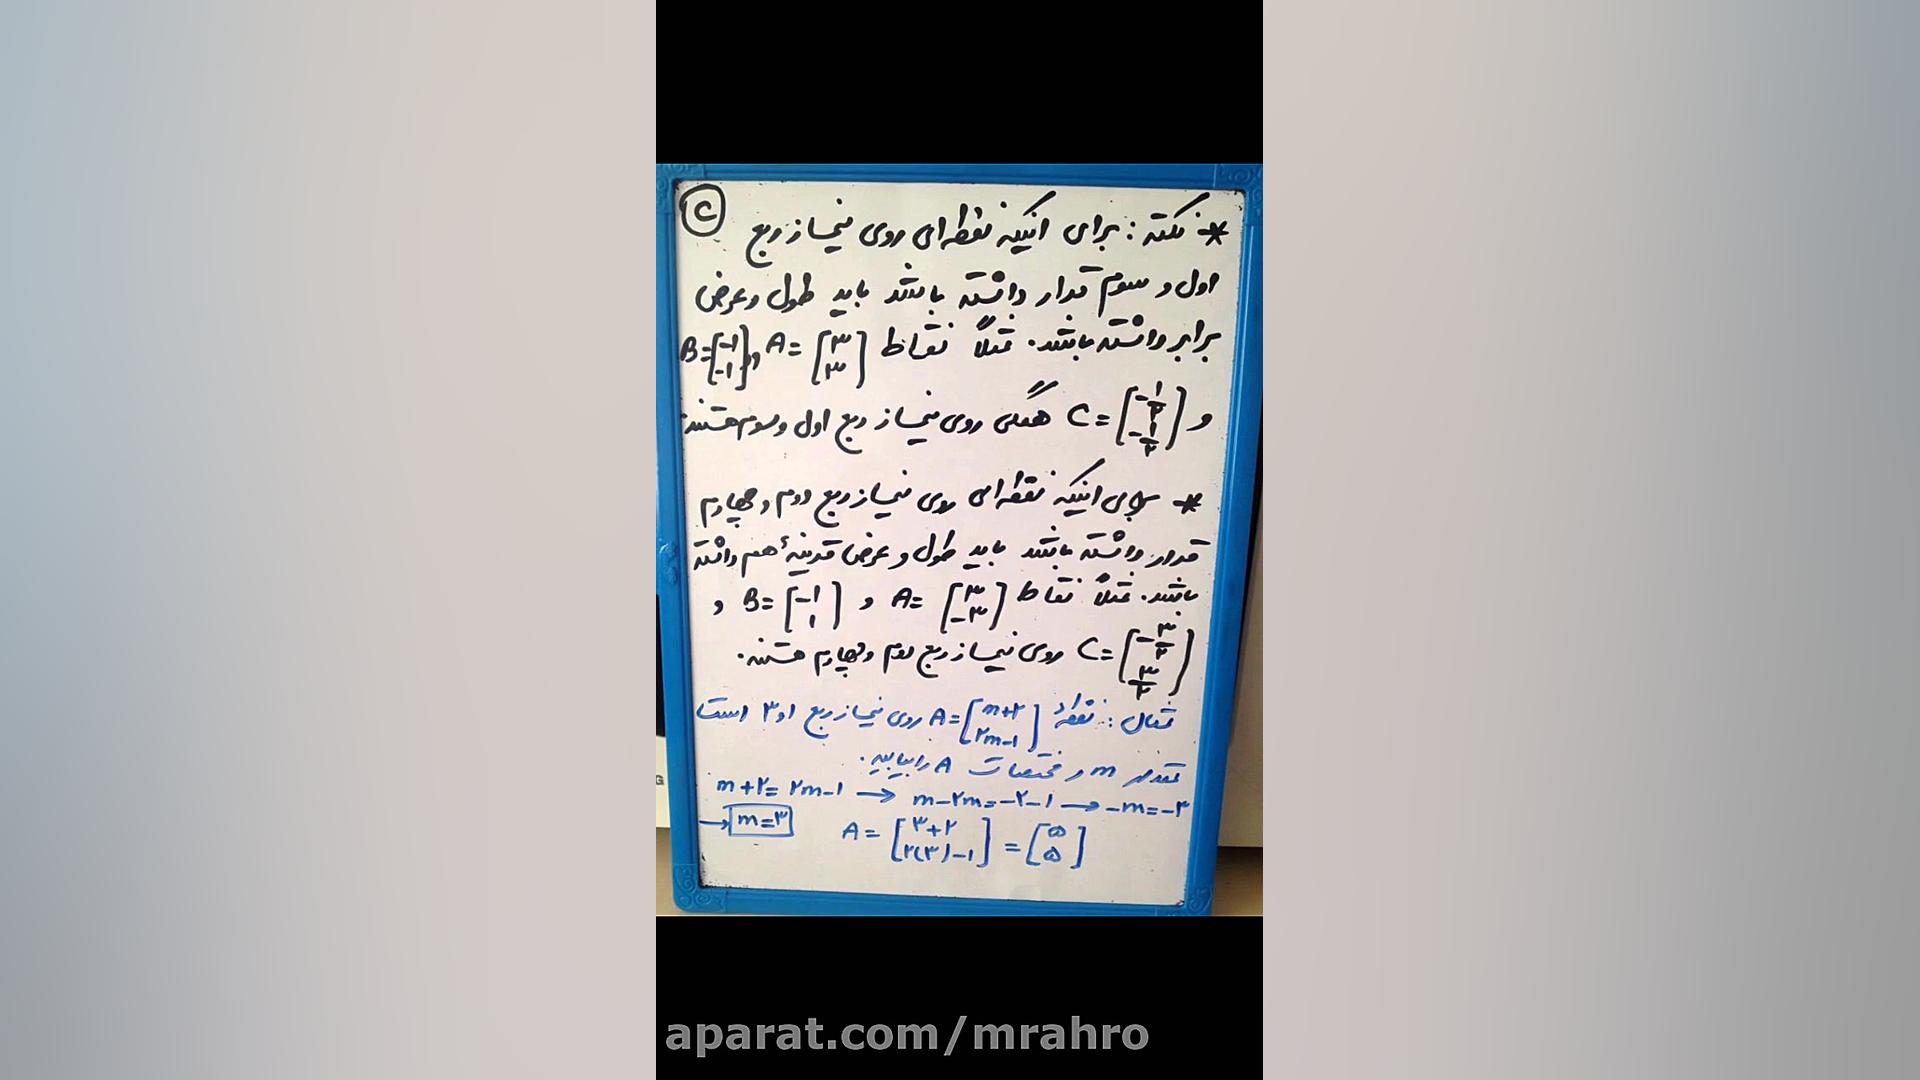 C
* نکته: برای اینکه نقطه‌ای روی نیمساز ربع
اول و سوم قرار داشته باشد باید طول و عرض
برابر داشته باشد. مثلاً نقاط A = [۳ ۳] و B = [-۱ -۱]
و C = [-۱/۲ -۱/۲] همگی روی نیمساز ربع اول و سوم هستند
* برای اینکه نقطه‌ای روی نیمساز ربع دوم و چهارم
قرار داشته باشد باید طول و عرض قرینهٔ هم داشته
باشد. مثلاً نقاط A = [۳ -۳] و B = [-۱ ۱] و
C = [-۳/۲ ۳/۲] روی نیمساز ربع دوم و چهارم هستند.
مثال: نقطه A = [m+۲ ۲m-۱] روی نیمساز ربع ۱ و ۳ است
مقدار m و مختصات A را بیابید.
m+۲ = ۲m-۱ → m-۲m = -۲-۱ → -m = -۳
→ m = ۳ A = [۳+۲ ۲(۳)-۱] = [۵ ۵]
G
aparat.com/mrahro